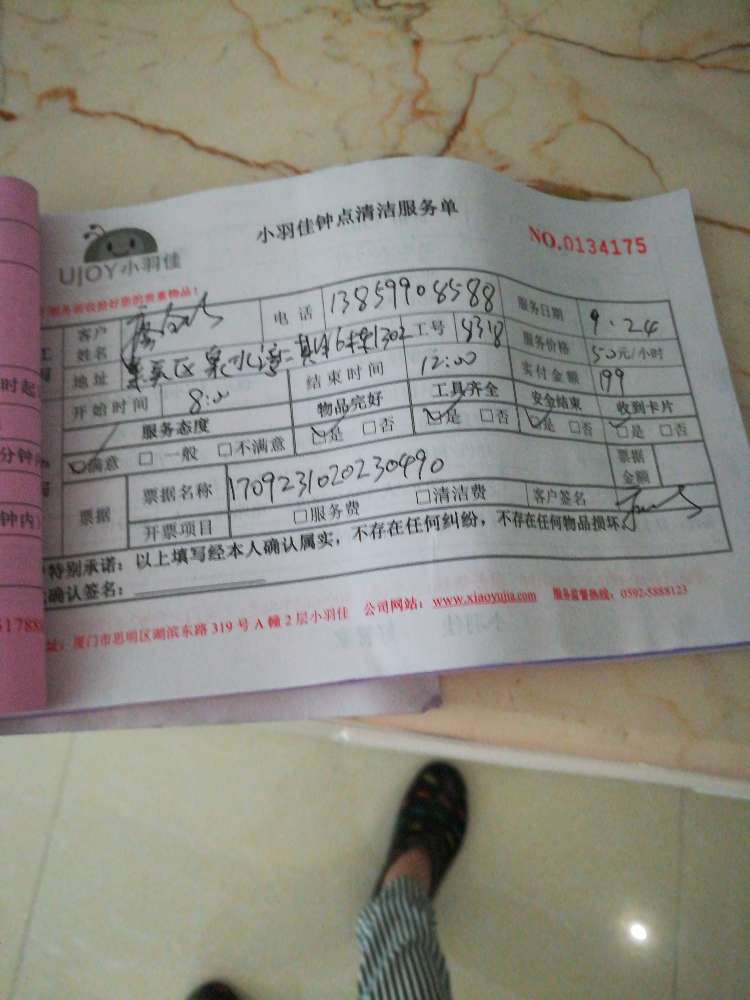 小羽佳钟点清洁服务单
UJOY小羽佳
NO.0134175
服务前收拾好您的贵重物品!
客户姓名 电话 13859908588 服务日期 9.24
地址 6栋1302 工号 8318 服务价格 50元/小时
开始时间 8:00 结束时间 12:00 实付金额 199
服务态度 物品完好 工具齐全 安全结束 收到卡片
满意 □一般 □不满意 是 □否 是 □否 是 □否 是 □否
票据 票据名称 1709231020230490 票据金额
开票项目 □服务费 □清洁费 客户签名
特别承诺:以上填写经本人确认属实,不存在任何纠纷,不存在任何物品损坏。
确认签名:
址:厦门市思明区湖滨东路319号A幢2层小羽佳 公司网站:www.xiaoyujia.com 服务监督热线:0592-5888123
时起
分钟
钟内